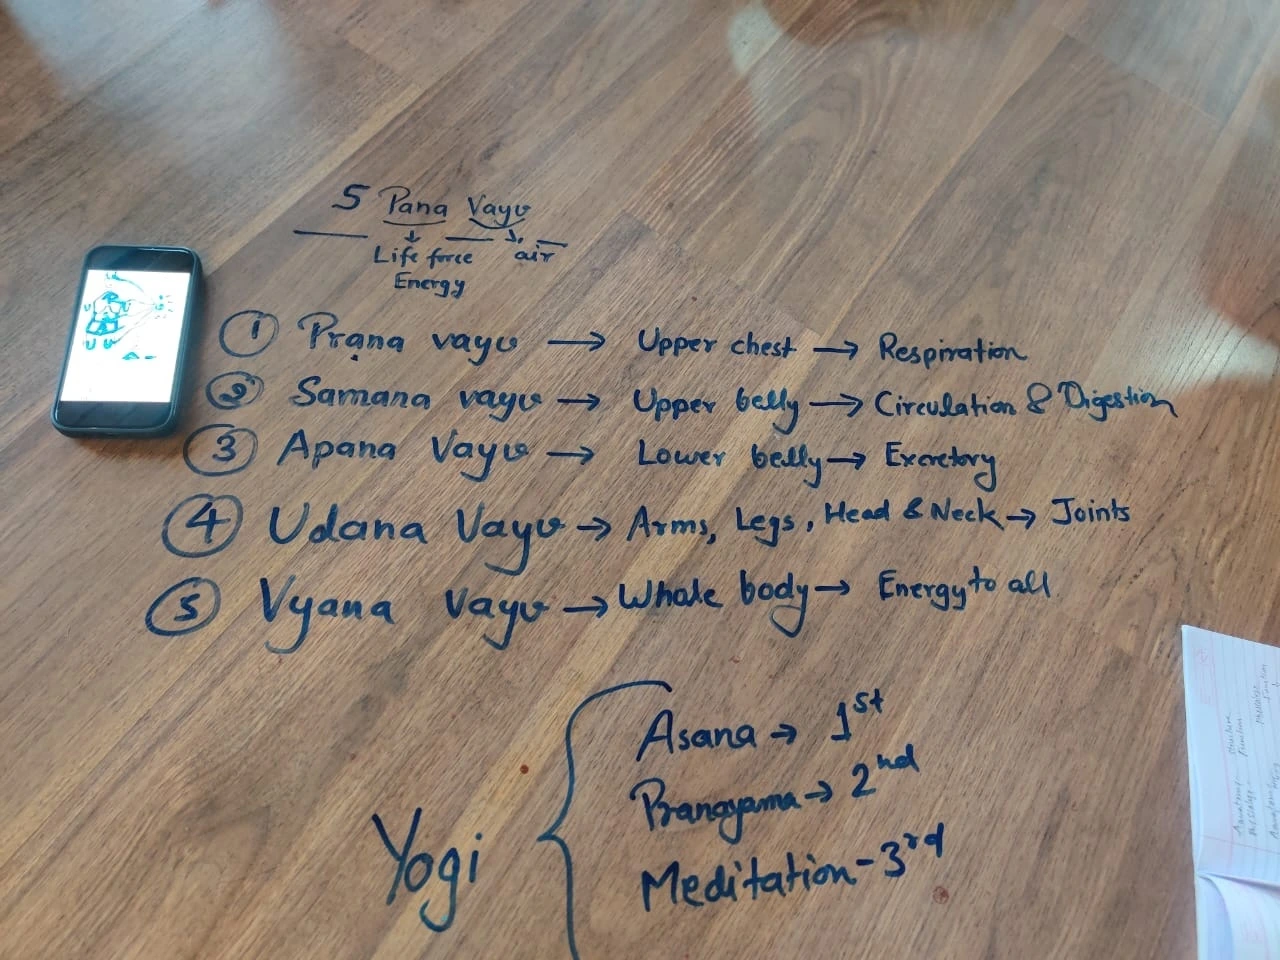 5 Pana Vayu
Life force air
Energy
① Prana vayu → Upper chest → Respiration
② Samana vayu → Upper belly → Circulation & Digestion
③ Apana Vayu → Lower belly → Excretory
④ Udana Vayu → Arms, Legs, Head & Neck → Joints
⑤ Vyana Vayu → Whole body → Energy to all
Yogi
Asana → 1st
Pranayama → 2nd
Meditation - 3rd